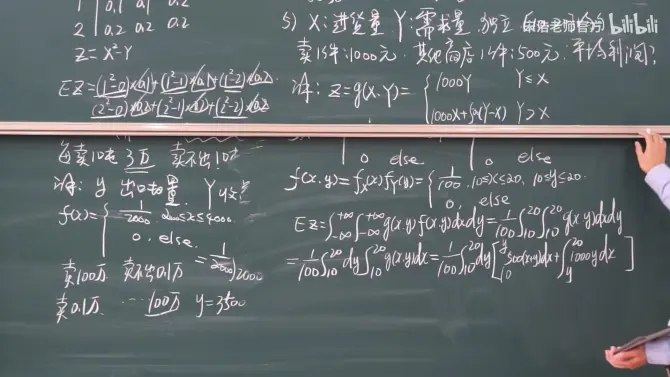 1 0.1 0.2
2 0.1 0.2
Z=X²-Y
EZ=(1²-0)×0.1+(1²-1)×0.1+(1²-2)×0.2
(2²-0)×0.2+(2²-1)×0.2+(2²-2)×0.2
5) X:进货量 Y:需求量. 独立
老师官方 bilibili
卖1件:1000元. 其他商店1件:500元. 平均利润?
解: Z=g(X.Y)=
1000Y Y≤X
1000X+500(Y-X) Y>X
每卖10吨 3万 卖不出10吨
解: y 出口量. Y收益
f(x)=
1/2000 2000≤x≤4000
0, else
=1/2000
卖100万 卖不出0.1万
卖0.1万 ... 100万 y=3500
0 else
0 else
f(x.y)=fX(x)fY(y)=
1/100 10≤x≤20, 10≤y≤20
0, else
EZ=∫-∞+∞∫-∞+∞g(x.y)f(x.y)dxdy=1/100∫1020∫1020g(x.y)dxdy
=1/100∫1020dy∫1020g(x.y)dx=1/100∫1020dy[∫10y500(x+y)dx+∫y201000ydx]